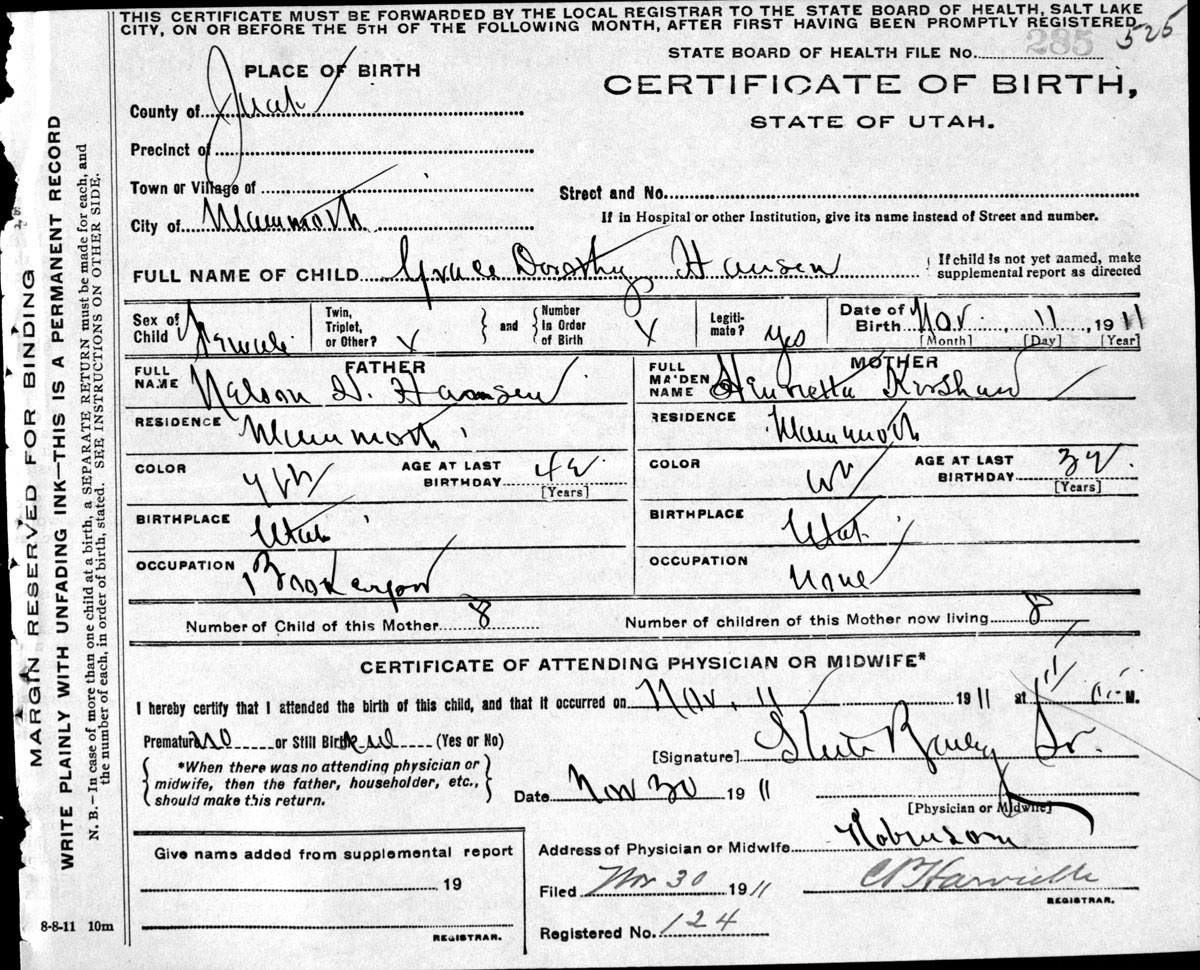 THIS CERTIFICATE MUST BE FORWARDED BY THE LOCAL REGISTRAR TO THE STATE BOARD OF HEALTH, SALT LAKE
CITY, ON OR BEFORE THE 5TH OF THE FOLLOWING MONTH, AFTER FIRST HAVING BEEN PROMPTLY REGISTERED.
525
STATE BOARD OF HEALTH FILE No. 285
PLACE OF BIRTH
CERTIFICATE OF BIRTH,
STATE OF UTAH.
County of Juab
Precinct of
Town or Village of
Street and No.
City of Mammoth
If in Hospital or other Institution, give its name instead of Street and number.
FULL NAME OF CHILD Grace Dorothy Hansen
If child is not yet named, make
supplemental report as directed
Sex of Child Female
Twin, Triplet, or Other? X
and Number in Order of Birth X
Legitimate? yes
Date of Birth Nov. 11, 1911
[Month] [Day] [Year]
FATHER
FULL NAME Nelson H. Hansen
RESIDENCE Mammoth
COLOR Wh
AGE AT LAST BIRTHDAY 42
[Years]
BIRTHPLACE Utah
OCCUPATION
MOTHER
FULL MAIDEN NAME Henrietta Kershaw
RESIDENCE Mammoth
COLOR W
AGE AT LAST BIRTHDAY 32
[Years]
BIRTHPLACE Utah
OCCUPATION none
Number of Child of this Mother 8
Number of children of this Mother now living 8
CERTIFICATE OF ATTENDING PHYSICIAN OR MIDWIFE*
I hereby certify that I attended the birth of this child, and that it occurred on Nov. 11 1911 at 11 M.
Premature no or Still Birth no (Yes or No)
*When there was no attending physician or
midwife, then the father, householder, etc.,
should make this return.
[Signature] Steele Bailey Jr.
Date Nov 30 1911
[Physician or Midwife]
Give name added from supplemental report
19
REGISTRAR.
Address of Physician or Midwife Robinson
Filed Nov 30 1911
REGISTRAR.
Registered No. 124
8-8-11 10m
MARGIN RESERVED FOR BINDING
WRITE PLAINLY WITH UNFADING INK—THIS IS A PERMANENT RECORD
N. B.—In case of more than one child at a birth, a SEPARATE RETURN must be made for each, and
the number of each, in order of birth, stated. SEE INSTRUCTIONS ON OTHER SIDE.